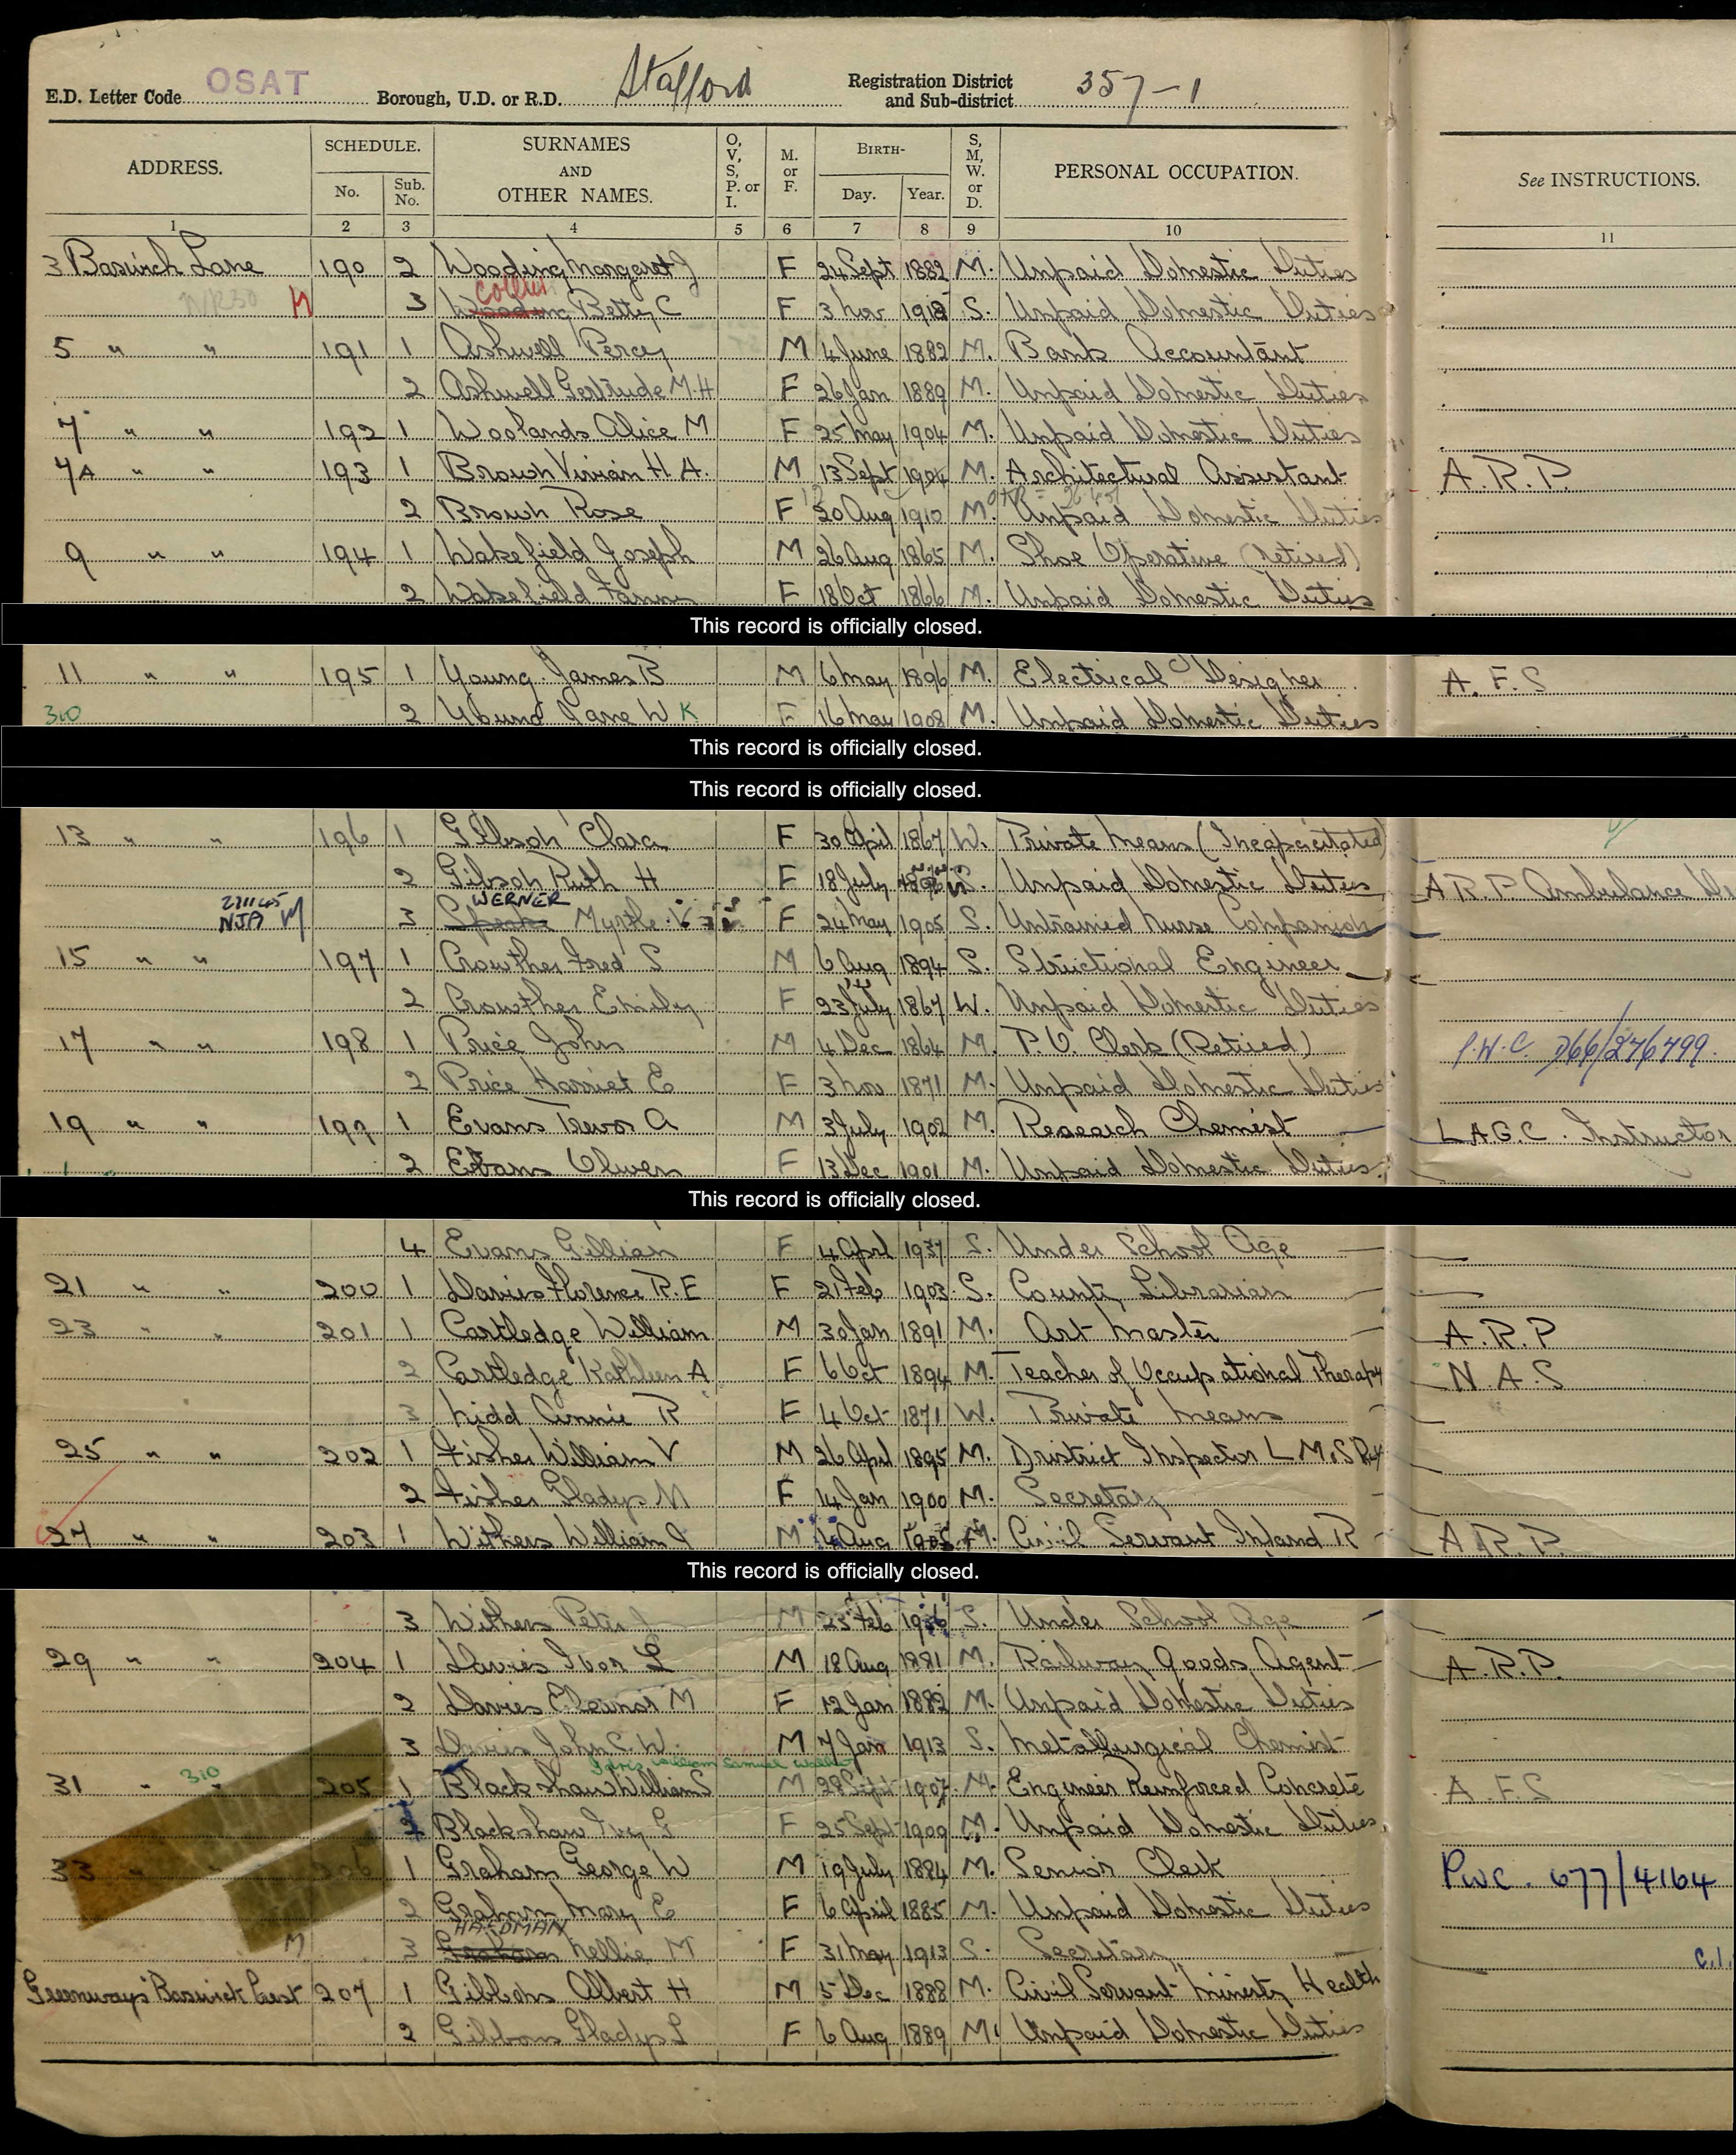 E.D. Letter Code OSAT Borough, U.D. or R.D. Stafford Registration District and Sub-district 357-1
ADDRESS. SCHEDULE. No. Sub. No. SURNAMES AND OTHER NAMES. O, V, S, P. or I. M. or F. BIRTH- Day. Year. S, M, W. or D. PERSONAL OCCUPATION. See INSTRUCTIONS.
1 2 3 4 5 6 7 8 9 10 11
3 Baswich Lane 190 2 Wooding Margaret J F 24 Sept 1882 M. Unpaid Domestic Duties
NR30 M 3 Wooding Betty C F 3 Nov 1918 S. Unpaid Domestic Duties
5 " " 191 1 Ashwell Percy M 4 June 1882 M. Bank Accountant
2 Ashwell Gertrude M.H F 26 Jan 1889 M. Unpaid Domestic Duties
7 " " 192 1 Woolands Alice M F 25 May 1904 M. Unpaid Domestic Duties
7A " " 193 1 Brough Vivian H.A. M 13 Sept 1904 M. Architectural Assistant A.R.P.
2 Brough Rose F 20 Aug 1910 M. Unpaid Domestic Duties
9 " " 194 1 Wakefield Joseph M 26 Aug 1865 M. Shoe Operative (retired)
2 Wakefield Fanny F 18 Oct 1866 M. Unpaid Domestic Duties
This record is officially closed.
11 " " 195 1 Young James B M 6 May 1896 M. Electrical Designer A.F.S
310 2 Young Jane W K F 16 May 1908 M. Unpaid Domestic Duties
This record is officially closed.
This record is officially closed.
13 " " 196 1 Gibson Clara F 30 April 1867 W. Private Means (Incapacitated)
2 Gibson Ruth H F 18 July S. Unpaid Domestic Duties A.R.P Ambulance
WERNER
NJA M 3 Myrtle F 24 May 1905 S. Untrained Nurse Companion
15 " " 197 1 Crowther Fred S M 6 Aug 1894 S. Structional Engineer
2 Crowther Emily F 23 July 1867 W. Unpaid Domestic Duties
17 " " 198 1 Price John M 4 Dec 1864 M. P.O. Clerk (Retired) P.W.C. 266/276799.
2 Price Harriet E F 3 Nov 1871 M. Unpaid Domestic Duties
19 " " 199 1 Evans Trevor A M 3 July 1902 M. Research Chemist L.A.G.C. Instructor
2 Evans Olwen F 13 Dec 1901 M. Unpaid Domestic Duties.
This record is officially closed.
4 Evans Gillian F 4 April 1937 S. Under School Age
21 " " 200 1 Davies Florence R.E F 21 Feb 1903 S. County Librarian
23 " " 201 1 Cartledge William M 30 Jan 1891 M. Art Master A.R.P
2 Cartledge Kathleen A F 6 Oct 1894 M. Teacher of Occupational Therapy N.A.S
3 Kidd Annie R F 4 Oct 1871 W. Private Means
25 " " 202 1 Fisher William V M 26 April 1895 M. District Inspector L.M.S Rly
2 Fisher Gladys M F 14 Jan 1900 M. Secretary
27 " " 203 1 Withers William J M Aug 1905 M. Civil Servant Inland R A.R.P.
This record is officially closed.
3 Withers Peter J M 25 Feb 1936 S. Under School Age
29 " " 204 1 Davies Ivor L M 18 Aug 1881 M. Railway Goods Agent A.R.P.
2 Davies Eleanor M F 12 Jan 1882 M. Unpaid Domestic Duties
3 Davies John C.W. M 7 Jan 1913 S. Metallurgical Chemist
William Samuel
31 " 310 " 205 1 Blackshaw William S M 28 Sept 1907 M. Engineer Reinforced Concrete A.F.S
2 Blackshaw Ivy G F 25 Sept 1909 M. Unpaid Domestic Duties
33 " " 206 1 Graham George W M 19 July 1884 M. Senior Clerk PWC. 677/4164
2 Graham Mary E F 6 April 1885 M. Unpaid Domestic Duties
HARDMAN
M 3 Graham Nellie M F 31 May 1913 S. Secretary C.I.
Greenways Baswick Crest 207 1 Gibbons Albert H M 5 Dec 1888 M. Civil Servant Ministry Health
2 Gibbons Gladys L F 6 Aug 1889 M. Unpaid Domestic Duties